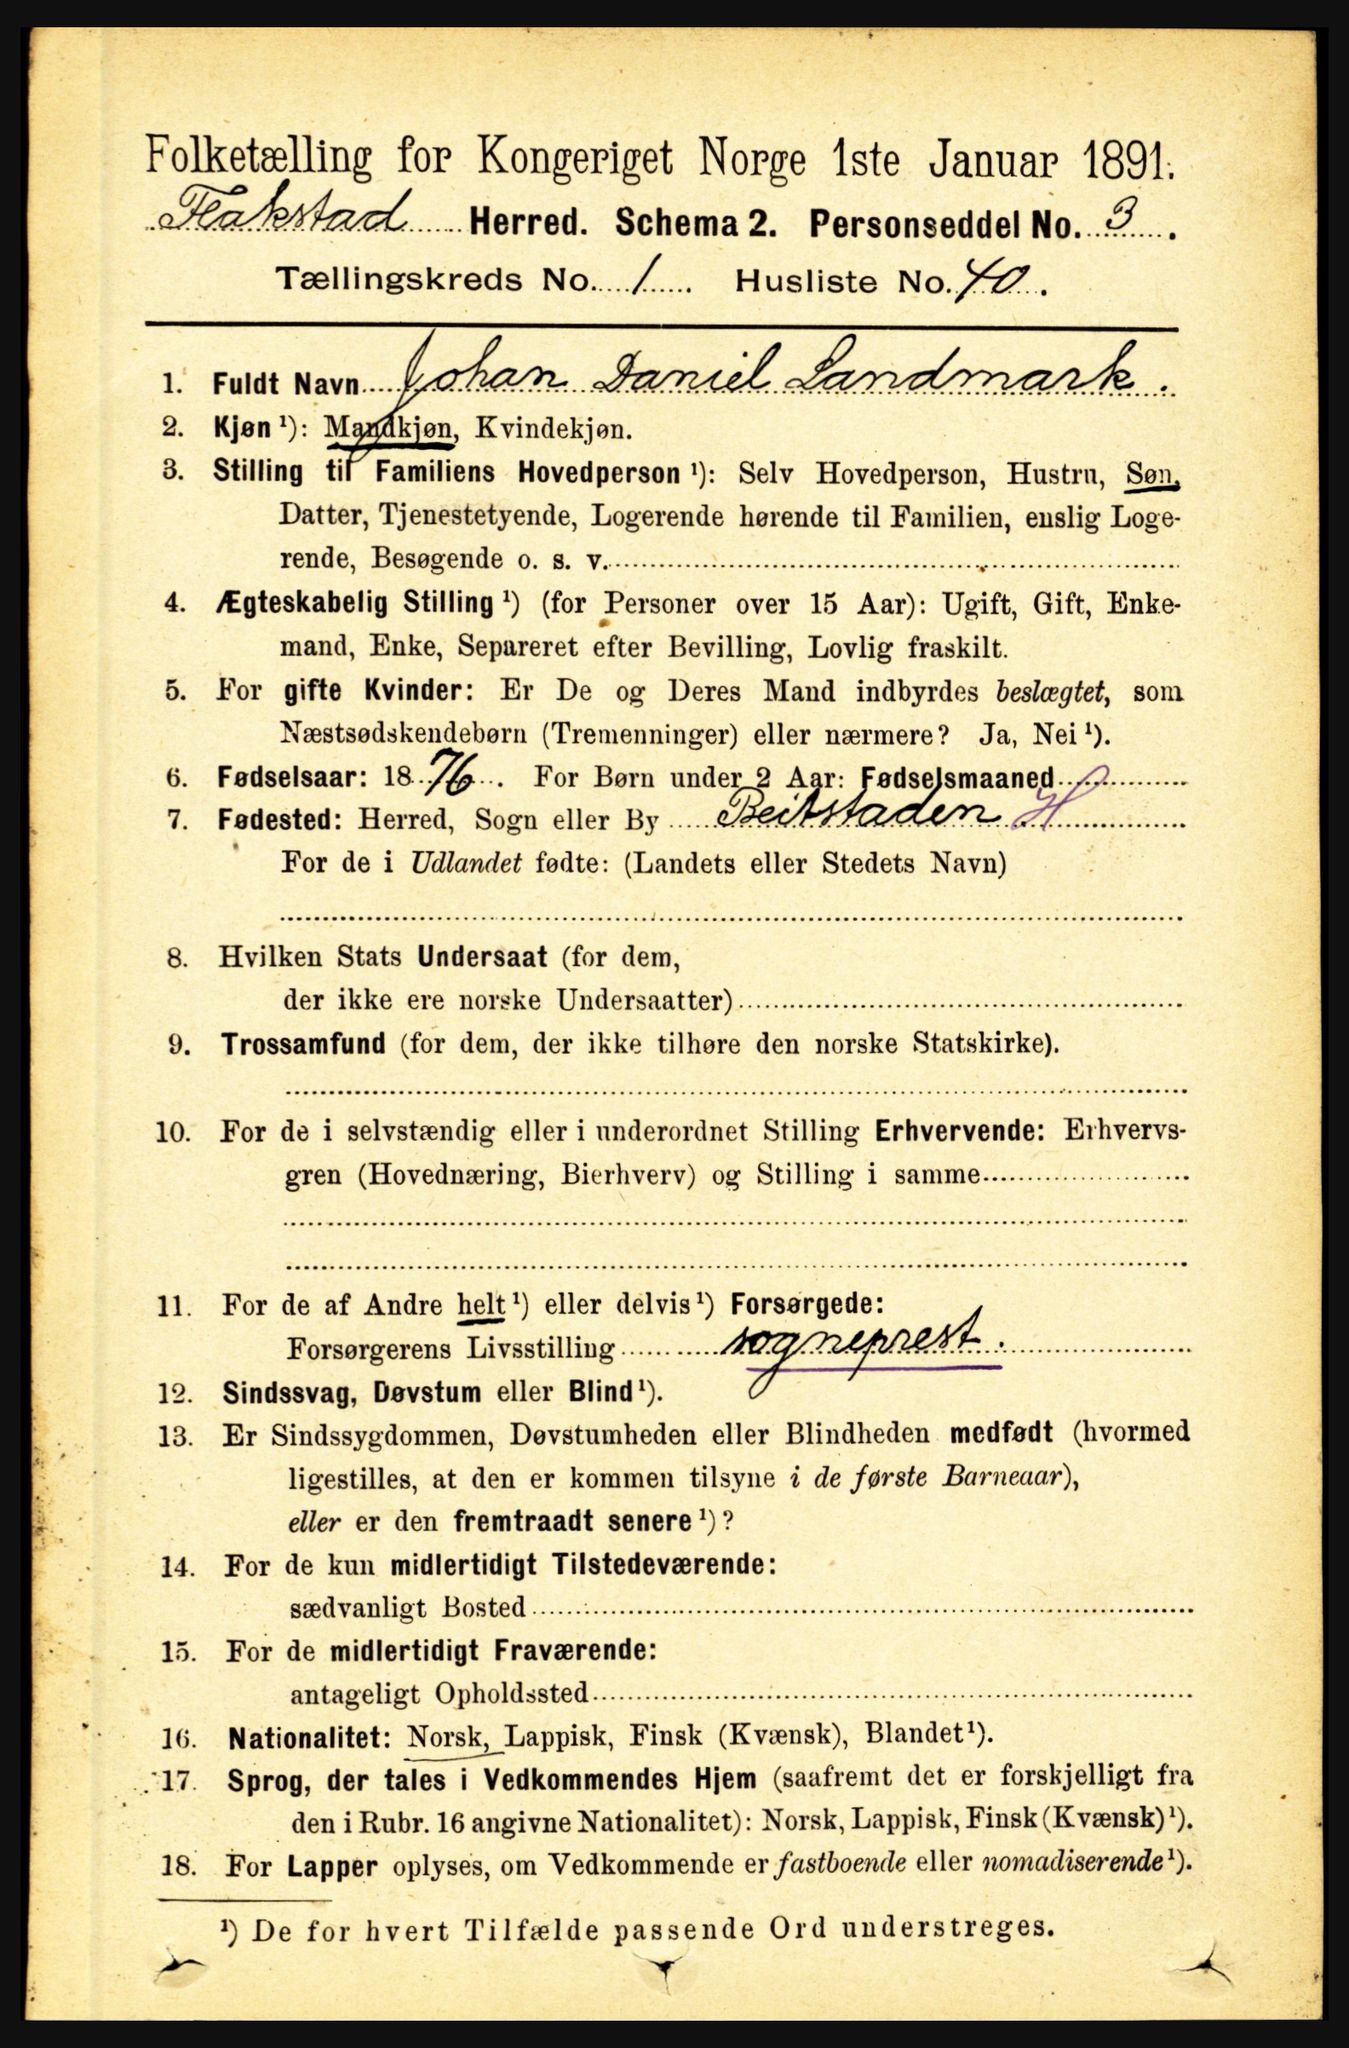 Folketælling for Kongeriget Norge 1ste Januar 1891.
Flakstad Herred. Schema 2. Personseddel No. 3.
Tællingskreds No. 1 Husliste No. 40.
1. Fuldt Navn Johan Daniel Landmark.
2. Kjøn ¹): Mandkjøn, Kvindekjøn.
3. Stilling til Familiens Hovedperson ¹): Selv Hovedperson, Hustru, Søn,
Datter, Tjenestetyende, Logerende hørende til Familien, enslig Loge-
rende, Besøgende o. s. v.
4. Ægteskabelig Stilling ¹) (for Personer over 15 Aar): Ugift, Gift, Enke-
mand, Enke, Separeret efter Bevilling, Lovlig fraskilt.
5. For gifte Kvinder: Er De og Deres Mand indbyrdes beslægtet, som
Næstsødskendebørn (Tremenninger) eller nærmere? Ja, Nei ¹).
6. Fødselsaar: 1876. For Børn under 2 Aar: Fødselsmaaned
7. Fødested: Herred, Sogn eller By Beitstaden H
For de i Udlandet fødte: (Landets eller Stedets Navn)
8. Hvilken Stats Undersaat (for dem,
der ikke ere norske Undersaatter)
9. Trossamfund (for dem, der ikke tilhøre den norske Statskirke).
10. For de i selvstændig eller i underordnet Stilling Erhvervende: Erhvervs-
gren (Hovednæring, Bierhverv) og Stilling i samme
11. For de af Andre helt ¹) eller delvis ¹) Forsørgede:
Forsørgerens Livsstilling sogneprest.
12. Sindssvag, Døvstum eller Blind ¹).
13. Er Sindssygdommen, Døvstumheden eller Blindheden medfødt (hvormed
ligestilles, at den er kommen tilsyne i de første Barneaar),
eller er den fremtraadt senere ¹)?
14. For de kun midlertidigt Tilstedeværende:
sædvanligt Bosted
15. For de midlertidigt Fraværende:
antageligt Opholdssted
16. Nationalitet: Norsk, Lappisk, Finsk (Kvænsk), Blandet ¹).
17. Sprog, der tales i Vedkommendes Hjem (saafremt det er forskjelligt fra
den i Rubr. 16 angivne Nationalitet): Norsk, Lappisk, Finsk (Kvænsk) ¹).
18. For Lapper oplyses, om Vedkommende er fastboende eller nomadiserende ¹).
¹) De for hvert Tilfælde passende Ord understreges.